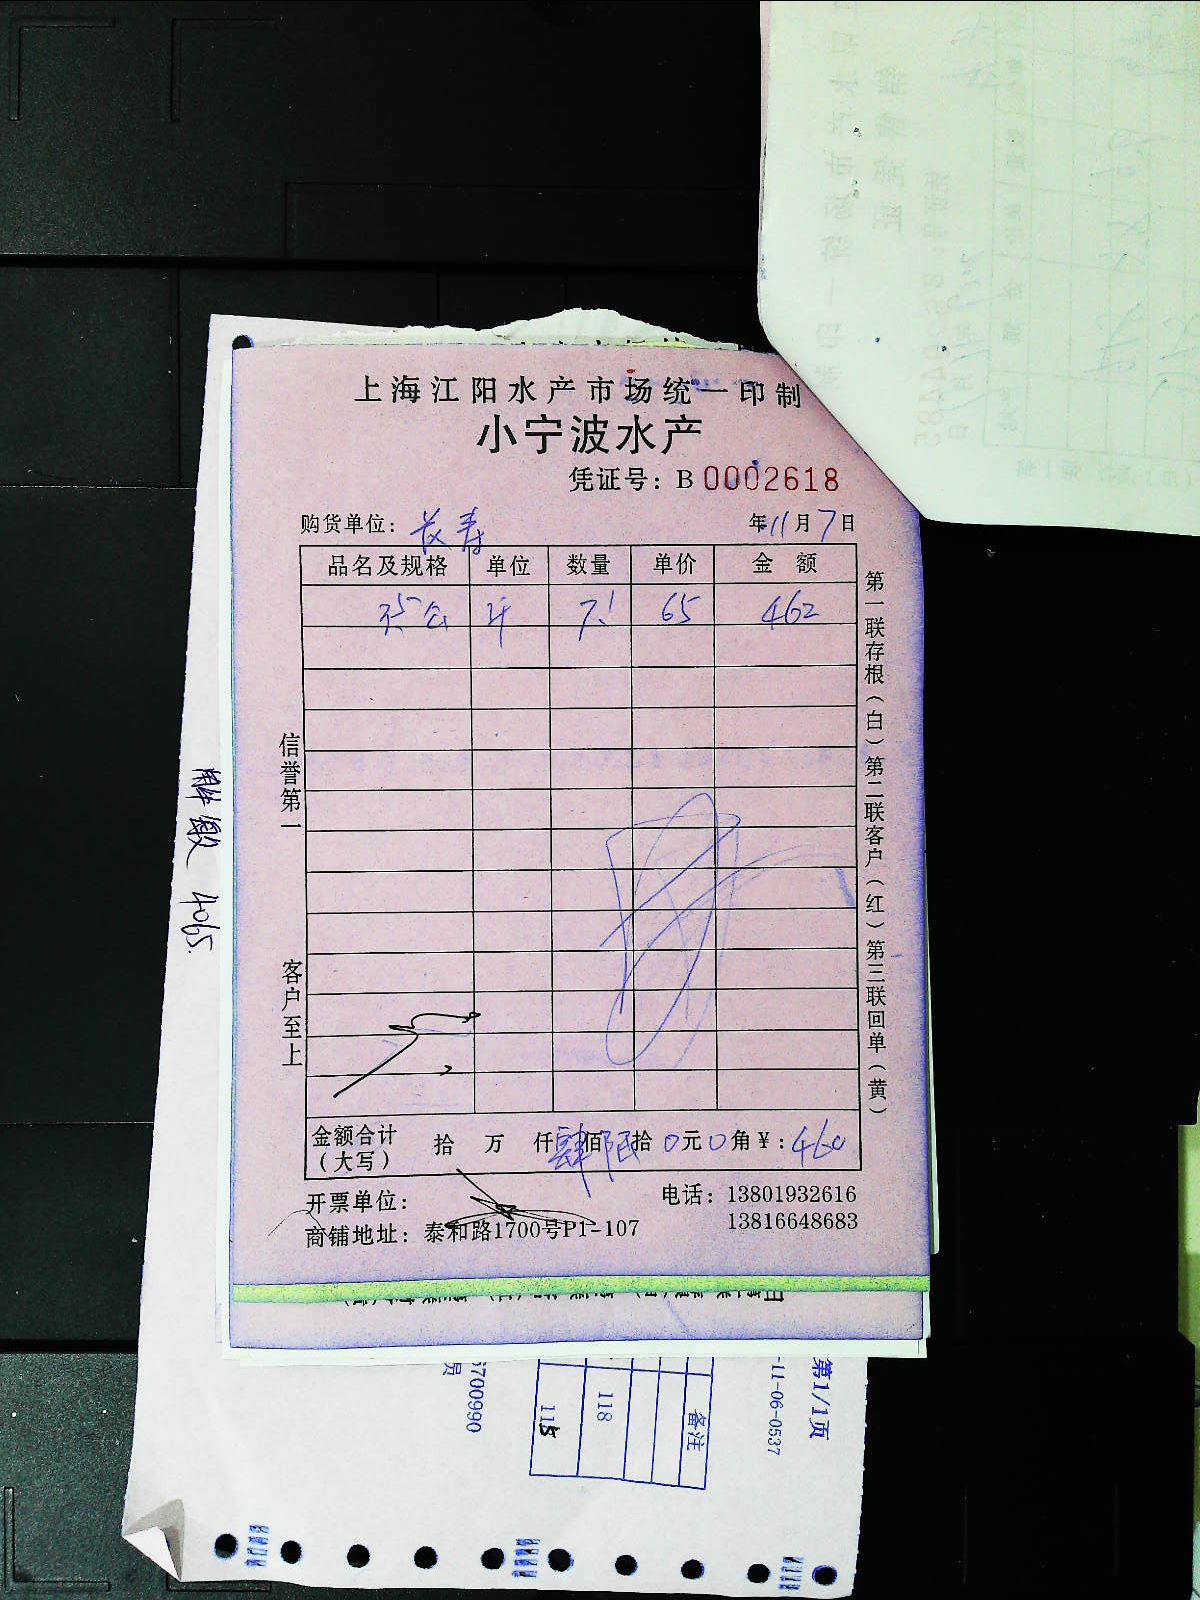 上海江阳水产市场统一印制
小宁波水产
凭证号：B 0002618
购货单位：长寿 年11月7日
品名及规格 单位 数量 单价 金 额
斤 7.1 65 462
信誉第一
客户至上
第一联存根（白）第二联客户（红）第三联回单（黄）
金额合计（大写） 拾 万 仟肆佰陆拾0元0角¥：460
开票单位： 电话：13801932616
13816648683
商铺地址：泰和路1700号P1-107
4065.
第1/1页
-11-06-0537
备注
118
118
5700990
员